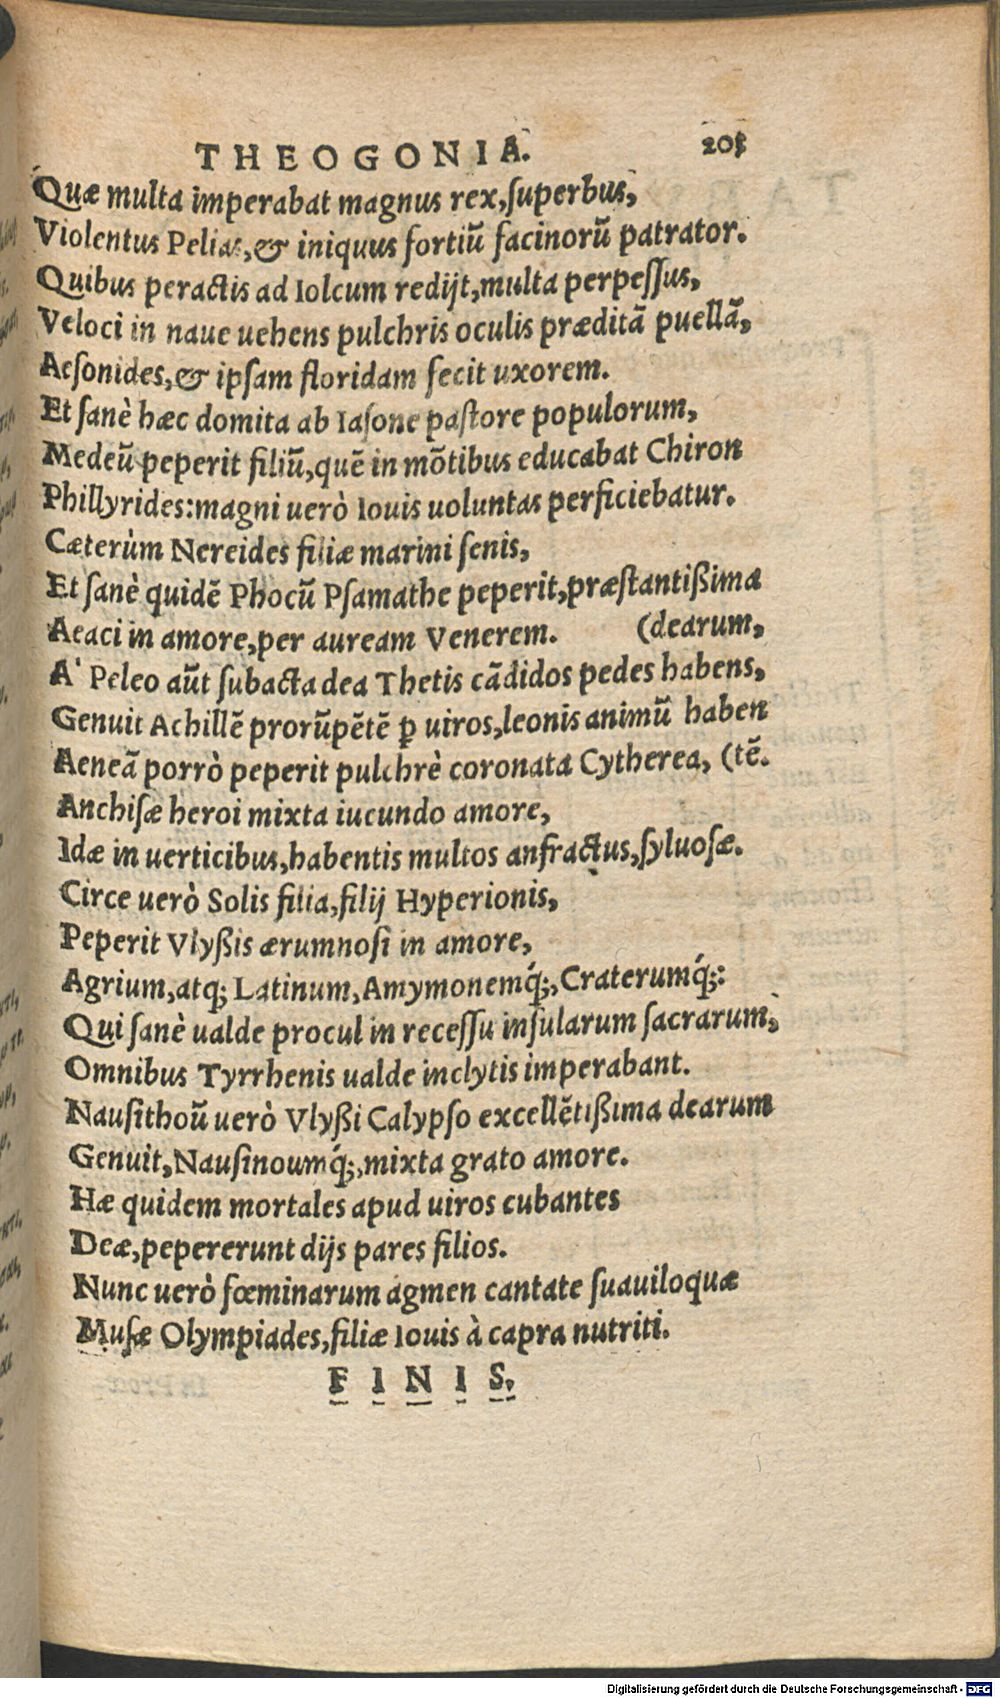 THEOGONIA. 205
Quæ multa imperabat magnus rex,ſuperbus,
Violentus Pelias,& iniquus fortiũ facinorũ patrator.
Quibus peractis ad Iolcum redijt,multa perpeſſus,
Veloci in naue uehens pulchris oculis præditã puellã,
Aeſonides,& ipſam floridam fecit uxorem.
Et ſanè hæc domita ab Iaſone paſtore populorum,
Medeũ peperit filiũ,quẽ in mõtibus educabat Chiron
Phillyrides:magni uerò Iouis uoluntas perficiebatur.
Cæterùm Nereides filiæ marini ſenis,
Et ſanè quidẽ Phocũ Pſamathe peperit,præſtantißima
Aeaci in amore,per auream Venerem. (dearum,
A' Peleo aũt ſubacta dea Thetis cãdidos pedes habens,
Genuit Achillẽ prorũpẽtẽ ꝑ uiros,leonis animũ haben
Aeneã porrò peperit pulchrè coronata Cytherea, (tẽ.
Anchiſæ heroi mixta iucundo amore,
Idæ in uerticibus,habentis multos anfractus,ſyluoſæ.
Circe uerò Solis filia,filij Hyperionis,
Peperit Vlyßis ærumnoſi in amore,
Agrium,atq; Latinum,Amymonemq́;,Craterumq́;:
Qui ſanè ualde procul in receſſu inſularum ſacrarum,
Omnibus Tyrrhenis ualde inclytis imperabant.
Nauſithoũ uerò Vlyßi Calypſo excellẽtißima dearum
Genuit,Nauſinoumq́;,mixta grato amore.
Hæ quidem mortales apud uiros cubantes
Deæ,pepererunt dijs pares filios.
Nunc uerò fœminarum agmen cantate ſuauiloquæ
Muſæ Olympiades,filiæ Iouis à capra nutriti.
FINIS.
Digitalisierung gefördert durch die Deutsche Forschungsgemeinschaft - DFG